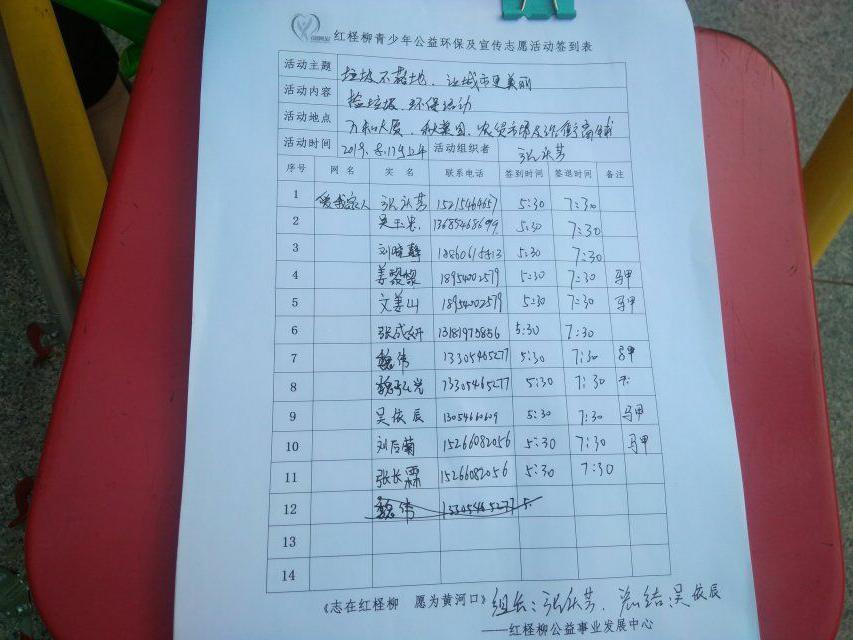 红柽柳青少年公益环保及宣传志愿活动签到表
活动主题 垃圾不落地，让城市更美丽
活动内容 捡垃圾、环保活动
活动地点
活动时间 2019.8.17号上午 活动组织者 张秋芳
序号 网名 实名 联系电话 签到时间 签退时间 备注
1 爱我家人 张秋芳 5:30 7:30
2 吴玉忠 5:30 7:30
3 5:30 7:30
4 18954002579 5:30 7:30 马甲
5 文姜山 18954002579 5:30 7:30 马甲
6 张成妍 13181975856 5:30 7:30
7 魏伟 13305465277 5:30 7:30 马甲
8 魏弘光 13305465277 5:30 7:30
9 吴依辰 13054660609 5:30 7:30 马甲
10 刘后菊 15266082056 5:30 7:30 马甲
11 张长霖 15266082056 5:30 7:30
12 魏伟 13305465277 5:
13
14
《志在红柽柳 愿为黄河口》 组长：张秋芳、总结：吴依辰
——红柽柳公益事业发展中心